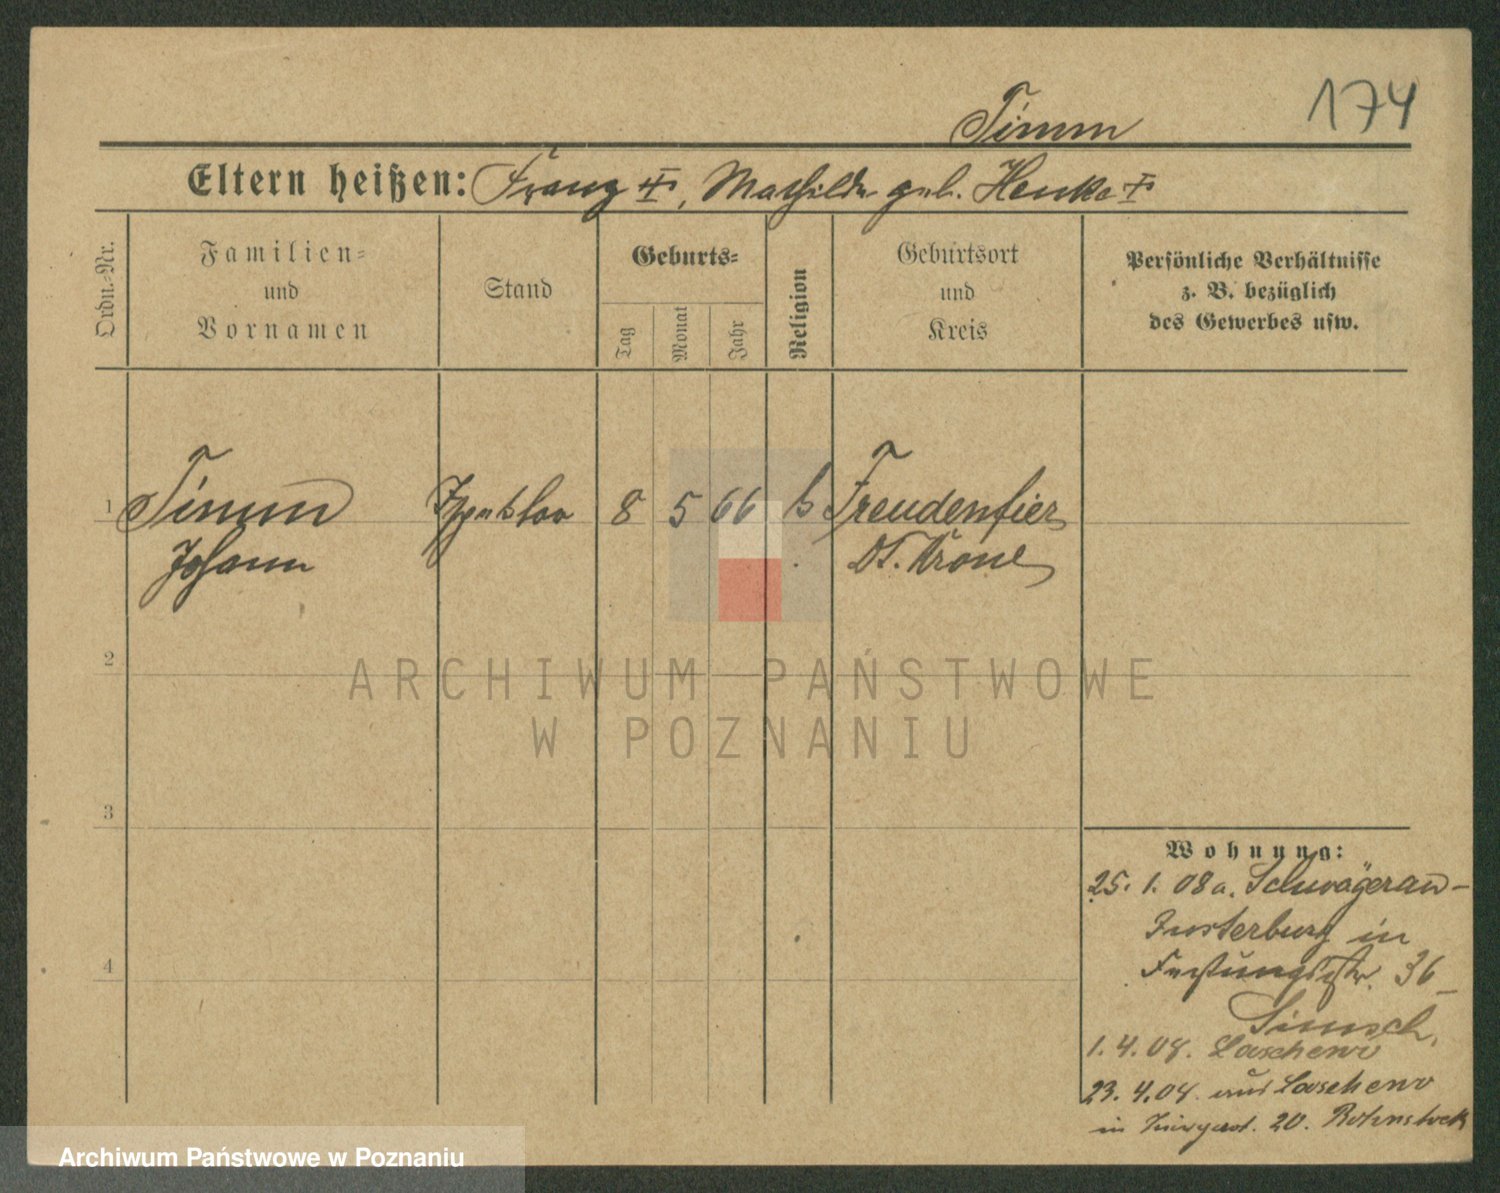 174
Timm
Eltern heißen: Franz ✝, Mathilde geb. Henke ✝
Ordn.=Nr.
Familien=
und
Vornamen
Stand
Geburts=
Tag
Monat
Jahr
Religion
Geburtsort
und
Kreis
Persönliche Verhältnisse
z. B. bezüglich
des Gewerbes usw.
1 Timm 8 5 66 k Freudenfier
Johann Dt. Krone
2
3
4
Wohnung:
25. 1. 08 a. Schwägerau-
Insterburg in
Festungsstr. 36
Simsch,
1. 4. 08. Laschewo
23. 4. 08. aus Laschewo
in 20. Rohnstock
ARCHIWUM PAŃSTWOWE
W POZNANIU
Archiwum Państwowe w Poznaniu